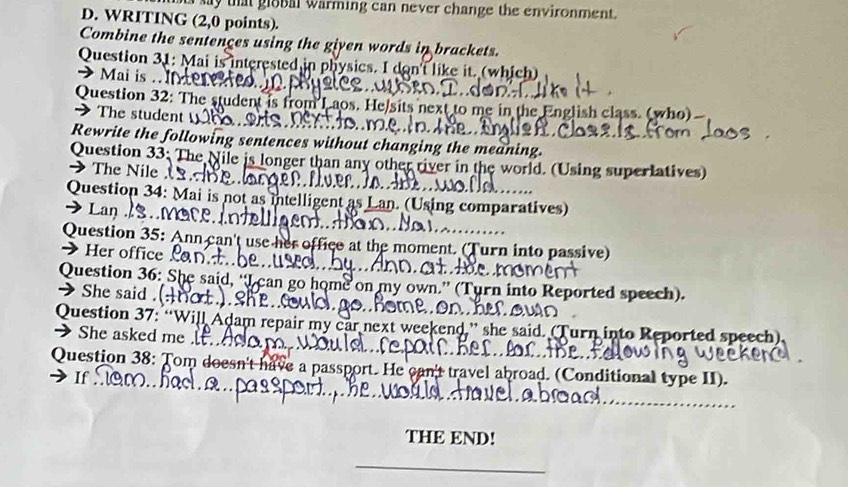 say that global warming can never change the environment.
D. WRITING (2,0 points).
Combine the sentences using the given words in brackets.
Question 31: Mai is interested in physics. I don't like it. (which)
→ Mai is .. Interested in physics which I don't like it.
Question 32: The student is from Laos. He sits next to me in the English class. (who)
→ The student who sits next to me in the English class is from Laos.
Rewrite the following sentences without changing the meaning.
Question 33: The Nile is longer than any other river in the world. (Using superlatives)
→ The Nile is the longer river in the world
Question 34: Mai is not as intelligent as Lan. (Using comparatives)
→ Lan is more intelligent than Mai
Question 35: Ann can't use her office at the moment. (Turn into passive)
→ Her office can't be used by Ann at the moment
Question 36: She said, "I can go home on my own." (Turn into Reported speech).
→ She said (that) she could go home on her own
Question 37: "Will Adam repair my car next weekend," she said. (Turn into Reported speech).
→ She asked me if Adam would repair her car the following weekend.
Question 38: Tom doesn't have a passport. He can't travel abroad. (Conditional type II).
→ If Tom had a passport, he would travel abroad
THE END!